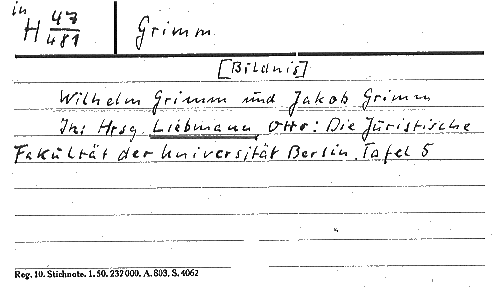 in
H 47/481 Grimm
[Bildnis]
Wilhelm Grimm und Jakob Grimm
In: Hrsg. Liebmann, Otto: Die Juristische
Fakultät der Universität Berlin. Tafel 5
Reg. 10. Stichnote. 1. 50. 232000. A. 803. S. 4062